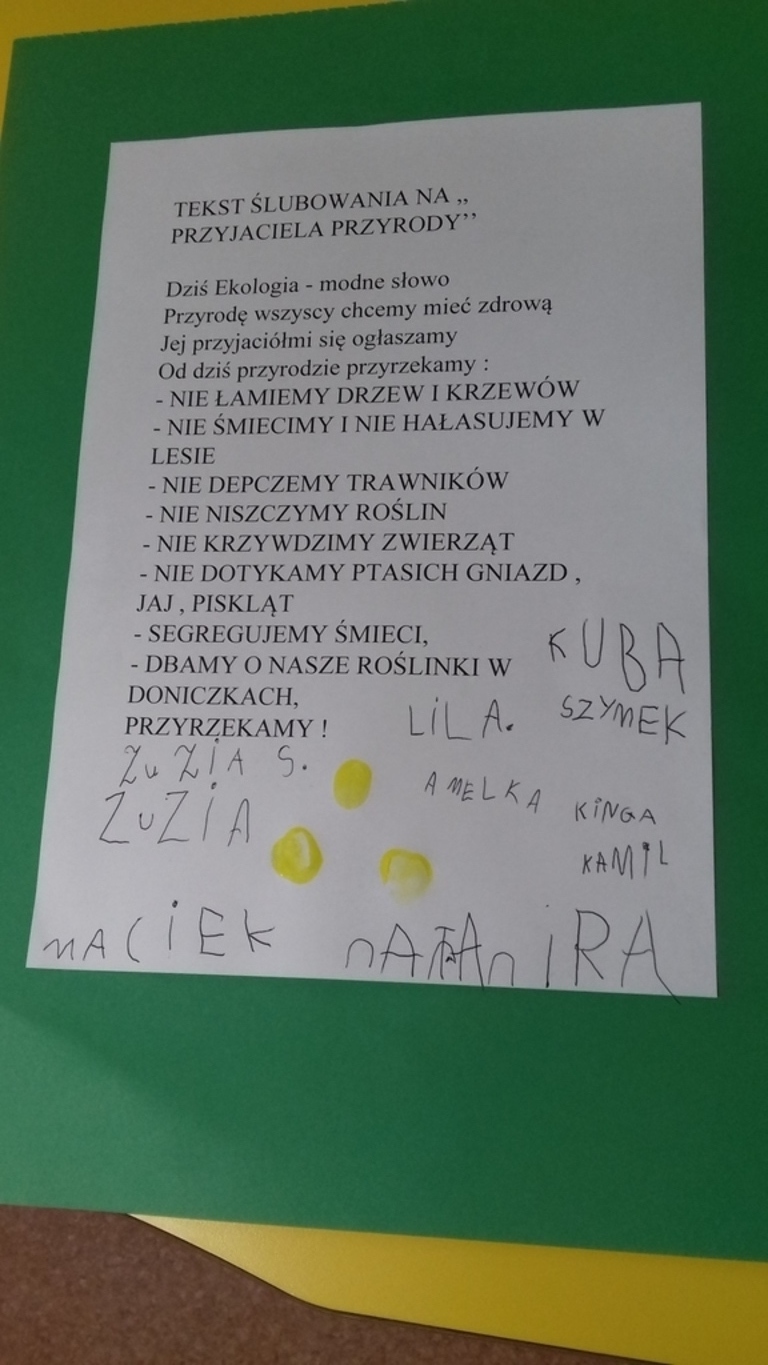 TEKST ŚLUBOWANIA NA ,,
PRZYJACIELA PRZYRODY’’
Dziś Ekologia - modne słowo
Przyrodę wszyscy chcemy mieć zdrową
Jej przyjaciółmi się ogłaszamy
Od dziś przyrodzie przyrzekamy :
- NIE ŁAMIEMY DRZEW I KRZEWÓW
- NIE ŚMIECIMY I NIE HAŁASUJEMY W
LESIE
- NIE DEPCZEMY TRAWNIKÓW
- NIE NISZCZYMY ROŚLIN
- NIE KRZYWDZIMY ZWIERZĄT
- NIE DOTYKAMY PTASICH GNIAZD ,
JAJ , PISKLĄT
- SEGREGUJEMY ŚMIECI,
- DBAMY O NASZE ROŚLINKI W
DONICZKACH,
PRZYRZEKAMY !
KUBA
LiLA.
SZYMEK
ZuZiA S.
AMELKA
KiNGA
ZuZiA
KAMiL
MACiEK
nATAn
iRA